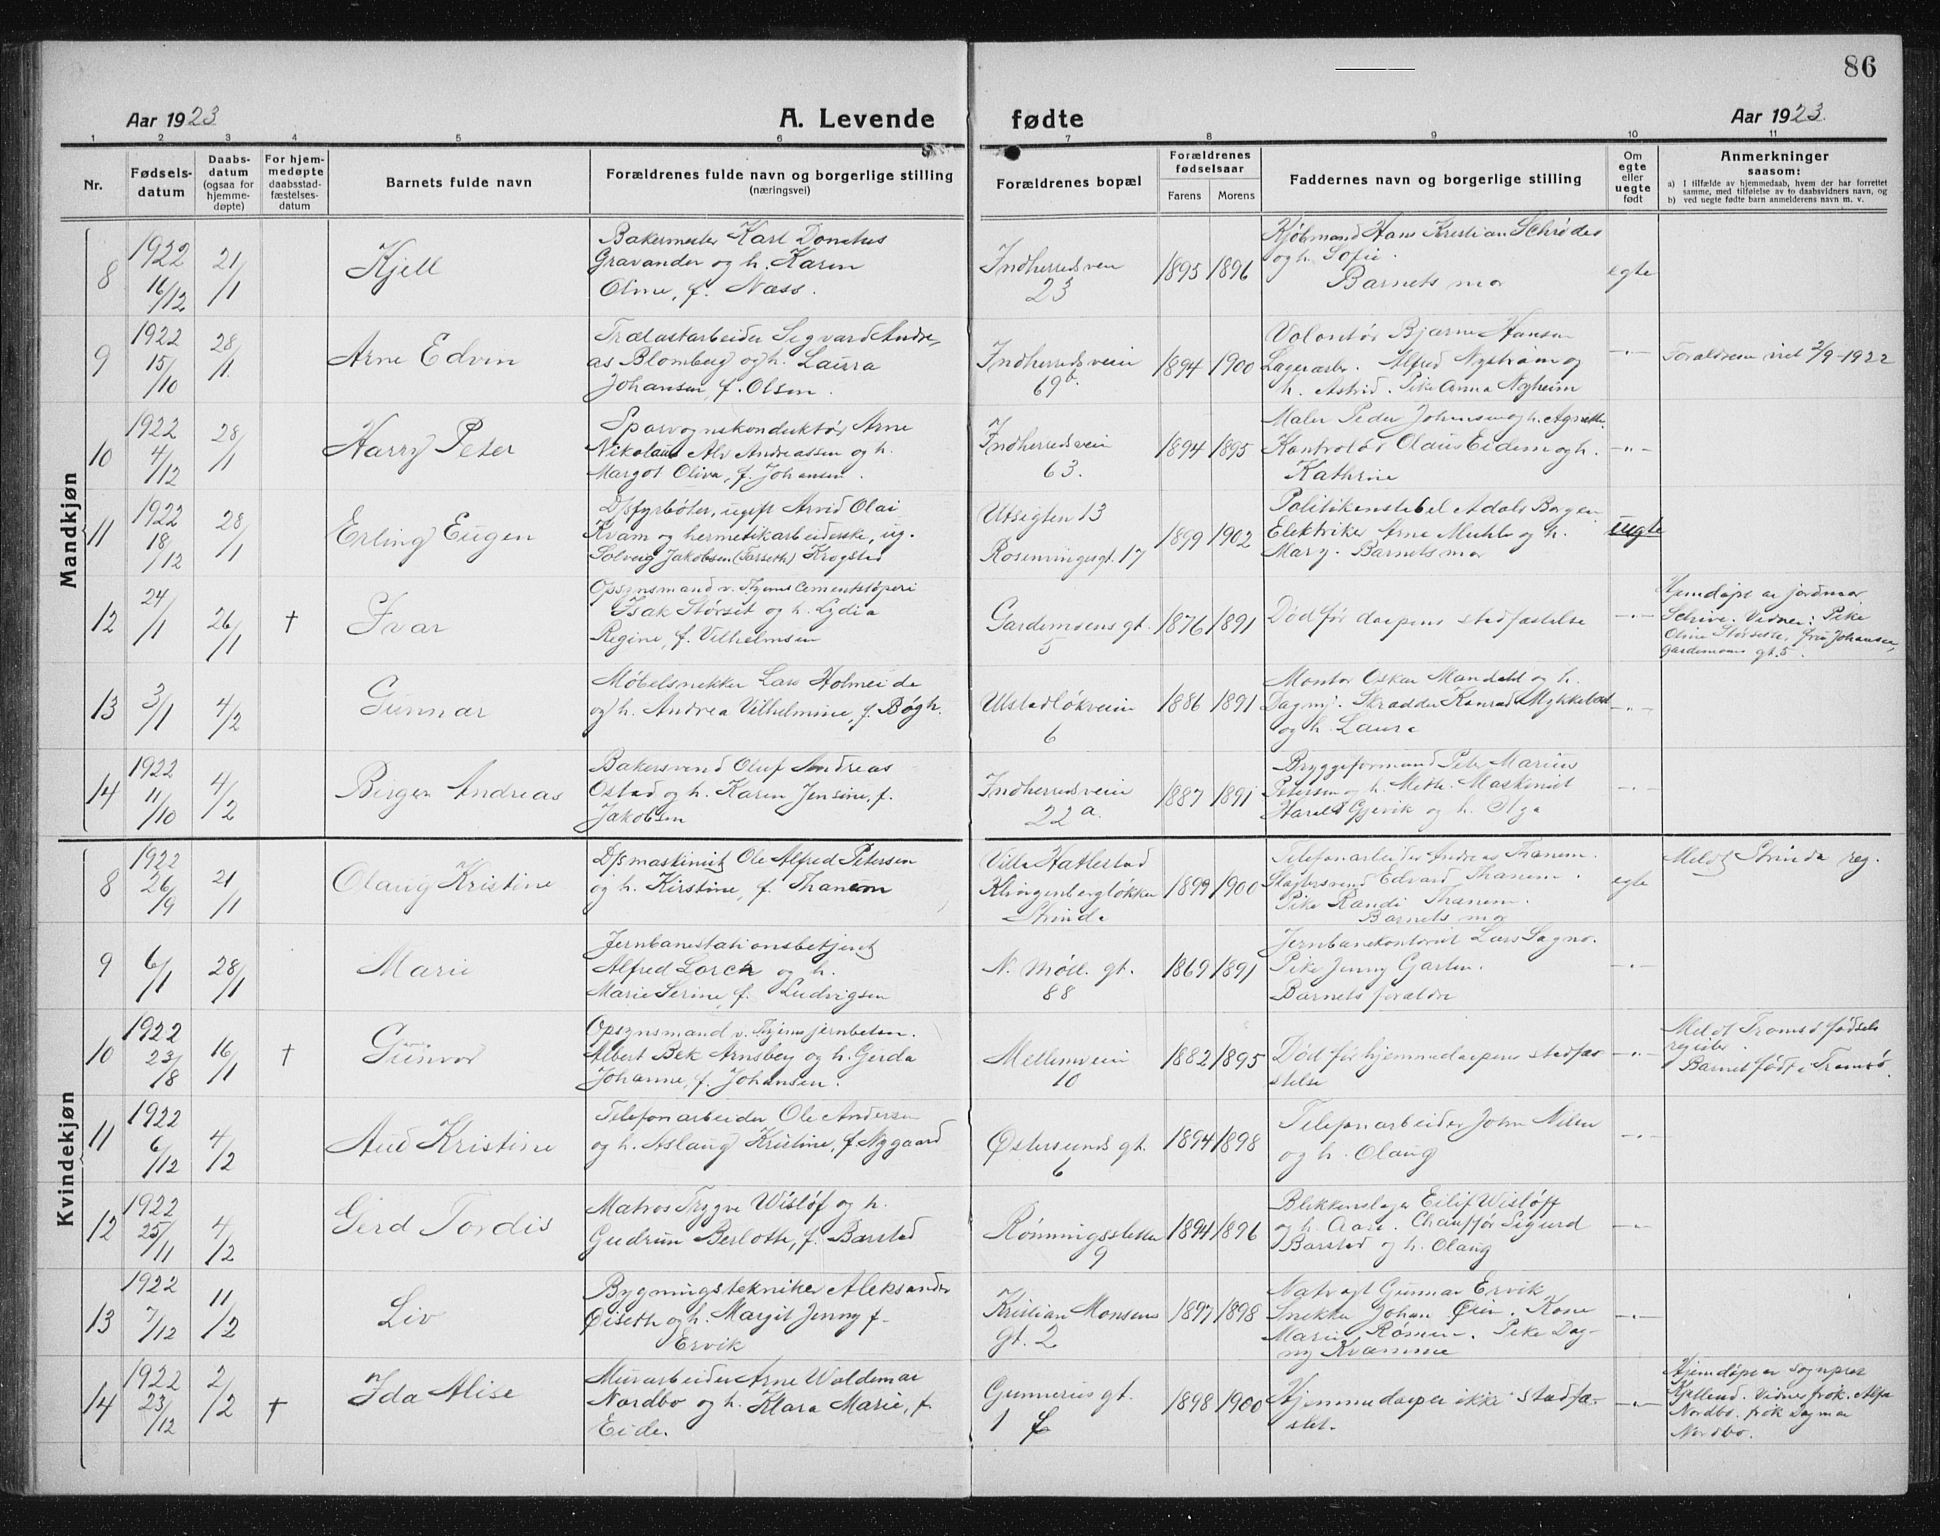 86
Aar 1923
A. Levende fødte
Aar 1923.
1 2 3 4 5 6 7 8 9 10 11
Nr.
Fødsels-
datum
Daabs-
datum
(ogsaa for
hjemme-
døpte)
For hjem-
medøpte
daabsstad-
fæstelses-
datum
Barnets fulde navn
Forældrenes fulde navn og borgerlige stilling
(næringsvei)
Forældrenes bopæl
Forældrenes
fødselsaar
Farens Morens
Faddernes navn og borgerlige stilling
Om
egte
eller
uegte
født
Anmerkninger
saasom:
a) I tilfælde av hjemmedaab, hvem der har forrettet
samme, med tilføielse av to daabsvidners navn, og
b) ved uegte fødte barn anmelderens navn m. v.
Mandkjøn
8
1922
16/12
21/1
Kjell
Bakermester Karl Donatus
Gravander og h. Karen
Oline, f. Næss.
Indherredsveien
23
1895 1896
Kjøbmand Hans Kristian Schrøder
og h. Sofie.
Barnets mor
egte
9
1922
15/10
28/1
Arne Edvin
Trælastarbeider Sigvard Andre-
as Blomberg og h. Laura
Johansen, f. Olsen.
Indherredsveien
69b
1894 1900
Volontør Bjarne Hansen
Lagerarb. Alfred Nystrøm og
h. Astrid. Pike Anna Nyheim
-"-
Forældrene viet 2/9-1922
10
1922
4/12
28/1
Harry Peter
Sporvognskonduktør Arne
Nikolaus Alv Andreassen og h.
Margot Oliva, f. Johansen.
Indherredsveien
63.
1894 1895
Maler Peder Johnsen og h. Agnethe
Kontrolør Olaus Eidem og h.
Kathrine
-"-
11
1922
18/12
28/1
Erling Eugen
D/sfyrbøter, ugift Arvid Olai
Kvam og hermetikarbeiderske, ug.
Solveig Jakobsen (Forseth) Krogstad
Utsigten 13
Rosenvingesgt. 17
1899 1902
Politikonstabel Adolf Borgen
Elektriker Arne Muhle og h.
Mary. Barnets mor
uegte
12
24/1
26/1
†
Ivar
Opsynsmand v. Thjems Cementstøperi
Isak Størset og h. Lydia
Regine, f. Vilhelmsen
Gardemoens gt.
5
1876 1891
Død før daapens stadfæstelse
-"-
Hjemdøpt av jordmor
Schive. Vidner: Pike
Oline Størseth, fru Johansen,
Gardemoens gt. 5.
13
3/1
4/2
Gunnar
Møbelsnekker Lars Holmeide
og h. Andrea Vilhelmine, f. Bøgh.
Ulstadløkveien
6
1886 1891
Montør Oskar Mandahl og h.
Dagny. Skrædder Konrad Myklebost
og h. Laura
-"-
14
1922
11/10
4/2
Birger Andreas
Bakersvend Oluf Andreas
Ostad og h. Karen Jensine, f.
Jakobsen
Indherredsveien
22 a.
1887 1891
Bryggeformand Peter Marius
Petersen og h. Meth. Maskinist
Harald Gjervik og h. Olga
-"-
Kvindekjøn
8
1922
26/9
21/1
Olaug Kristine
D/smaskinist Ole Alfred Petersen
og h. Kirstine, f. Thanem
Villa Hatlestad
Klingenbergløkken
Strinda
1899 1900
Telefonarbeider Andreas Tranem.
Slagtersvend Edvard Thanem.
Pike Randi Thanem.
Barnets mor
egte
Meldt Strinda reg.
9
6/1
28/1
Marie
Jernbanestationsbetjent
Alfred Lorch og h.
Marie Serine, f. Ludvigsen
N. Møll. gt.
88
1869 1891
Jernbanekontorist Lars Sagmo.
Pike Jenny Garten.
Barnets forældre
-"-
10
1922
23/8
16/1
†
Gunvor
Opsynsmand v. Thjems jernbeton.
Albert Bek Arnsberg og h. Gerda
Johanne, f. Johansen.
Mellemveien
10
1882 1895
Død før hjemmedaapens stadfæ-
stelse
-"-
Meldt Tromsø fødsels
register.
Barnet født i Tromsø.
11
1922
6/12
4/2
Aud Kristine
Telefonarbeider Ole Andersen
og h. Aslaug Kristine, f. Nygaard
Østersunds gt.
6
1894 1898
Telefonarbeider John Nilsen
og h. Olaug
-"-
12
1922
25/11
4/2
Gerd Tordis
Matros Trygve Wisløf og h.
Gudrun Berlotte, f. Barstad
Rønningsletten
9
1894 1896
Blikkenslager Eilif Wisløff
og h. Aase. Chauffør Sigurd
Barstad og h. Olaug
-"-
13
1922
7/12
11/2
Liv
Bygningstekniker Aleksander
Øiseth og h. Margit Jenny f.
Ervik
Kristian Monsens
gt. 2
1897 1898
Natvagt Gunnar Ervik
Snekker Johan Øien. Kone
Marie Rømen. Pike Dag-
ny Kvamme
-"-
14
1922
23/12
2/2
†
Ida Alise
Murarbeider Arne Waldemar
Nordbo og h. Klara Marie, f.
Eide.
Gunnerus gt.
1 f
1898 1900
Hjemmedaapen ikke stadfæ-
stet.
-"-
Hjemdøpt av sognprest
Kjelland. Vidner frøk. Alfa
Nordbo. frøk Dagmar
Nordbo.